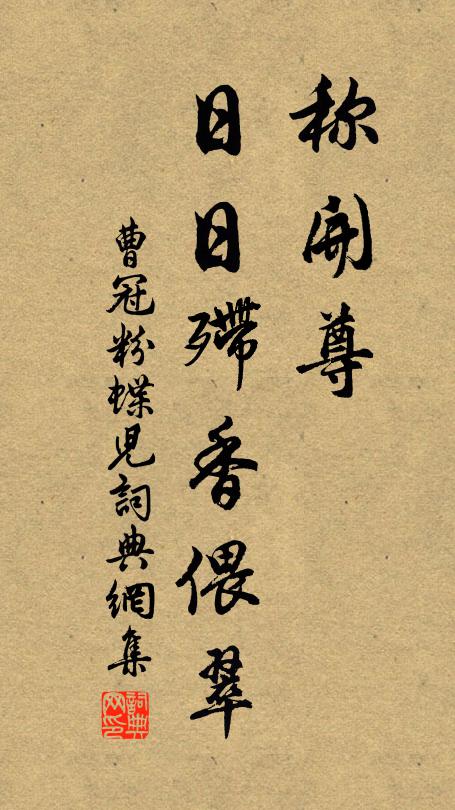 称開尊
日日殢香偎翠
曹冠粉蝶児詞典網集
詞典网印